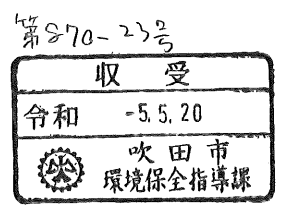 第870-23号
収受
令和 -5.5.20
吹田市
環境保全指導課